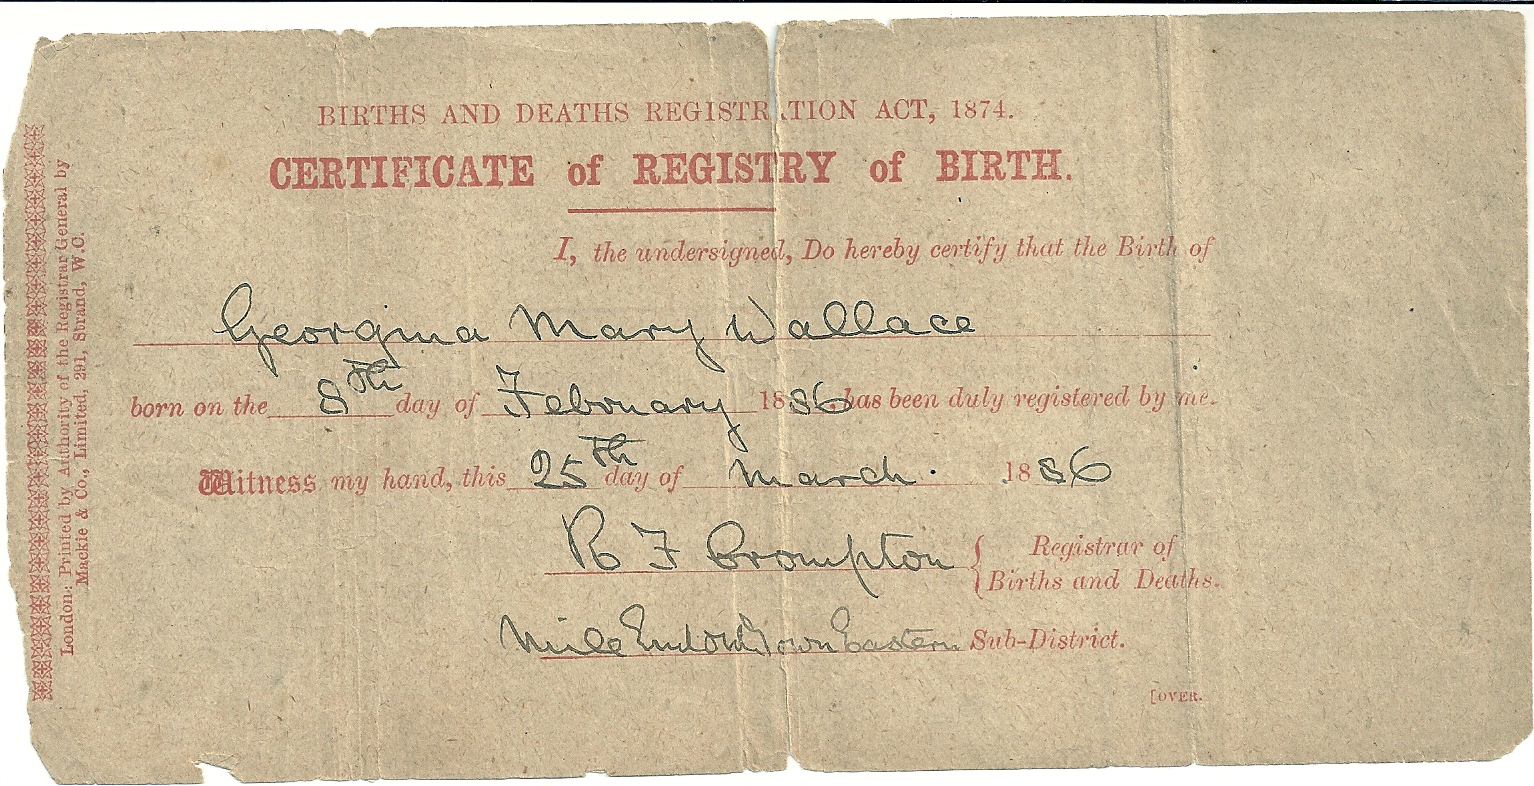 BIRTHS AND DEATHS REGISTRATION ACT, 1874.
CERTIFICATE of REGISTRY of BIRTH.
I, the undersigned, Do hereby certify that the Birth of
Georgina Mary Wallace
born on the 8th day of February 1886, has been duly registered by me.
Witness my hand, this 25th day of March 1886
R F Crompton { Registrar of
Births and Deaths.
Mile End Old Town Eastern Sub-District.
[OVER.
London: Printed by Authority of the Registrar General by
Mackie & Co., Limited, 291, Strand, W.C.